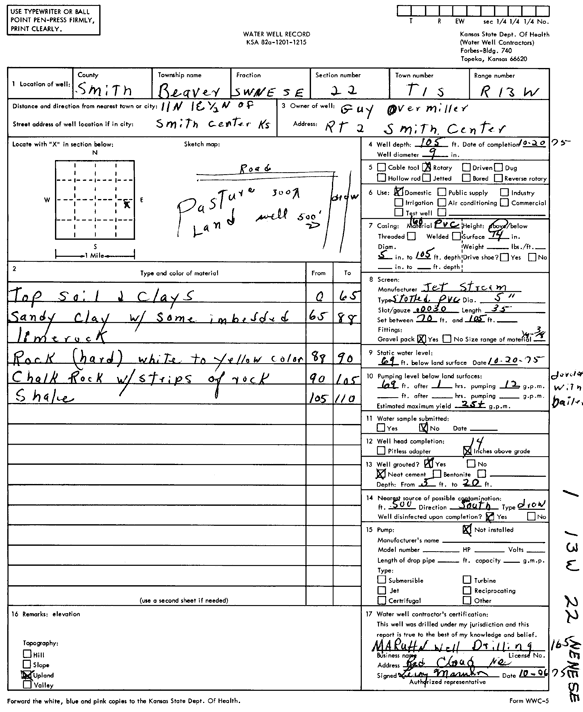 USE TYPEWRITER OR BALL
POINT PEN-PRESS FIRMLY,
PRINT CLEARLY.
WATER WELL RECORD
KSA 82a-1201-1215
T R EW sec 1/4 1/4 1/4 No.
Kansas State Dept. Of Health
(Water Well Contractors)
Forbes-Bldg. 740
Topeka, Kansas 66620
1 Location of well: County Smith Township name Beaver Fraction SWNESE Section number 22 Town number T1S Range number R13W
Distance and direction from nearest town or city: 11N 1E 1/2 N OF
Street address of well location if in city: Smith Center Ks
3 Owner of well: Guy Overmiller
Address: RT 2 Smith Center
Locate with "X" in section below:
N
W E
X
S
1 Mile
Sketch map:
Road
Pasture 300ft
Land well 500'
draw
4 Well depth: 105 ft. Date of completion 10-20-75
Well diameter 9 in.
5 Cable tool X Rotary Driven Dug
Hollow rod Jetted Bored Reverse rotary
6 Use: X Domestic Public supply Industry
Irrigation Air conditioning Commercial
Test well
7 Casing: Material PVC Height: above/below
Threaded Welded Surface 14 in.
Diam. Weight lbs./ft.
5 in. to 105 ft. depth Drive shoe? Yes No
in. to ft. depth
8 Screen:
Manufacturer Jet Stream
Type Slotted PVC Dia. 5"
Slot/gauze .0030 Length 35
Set between 70 ft. and 105 ft.
Fittings:
Gravel pack X Yes No Size range of material
9 Static water level:
69 ft. below land surface Date 10-20-75
10 Pumping level below land surfaces:
69 ft. after 1 hrs. pumping 12 g.p.m.
ft. after hrs. pumping g.p.m.
Estimated maximum yield 25+ g.p.m.
with
bailer
11 Water sample submitted:
Yes X No Date
12 Well head completion: 14
Pitless adapter X Inches above grade
13 Well grouted? X Yes No
X Neat cement Bentonite
Depth: From 3 ft. to 20 ft.
14 Nearest source of possible contamination:
ft. 500 Direction South Type draw
Well disinfected upon completion? X Yes No
15 Pump: X Not installed
Manufacturer's name
Model number HP Volts
Length of drop pipe ft. capacity g.m.p.
Type:
Submersible Turbine
Jet Reciprocating
Centrifugal Other
2 Type and color of material From To
Top Soil & Clays 0 65
Sandy Clay w/ some imbedded 65 88
limerock
Rock (hard) white to yellow color 88 90
Chalk Rock w/ strips of rock 90 105
Shale 105 110
(use a second sheet if needed)
16 Remarks: elevation
Topography:
Hill
Slope
X Upland
Valley
17 Water well contractor's certification:
This well was drilled under my jurisdiction and this
report is true to the best of my knowledge and belief.
MARUHN Well Drilling 165
Business name License No.
Address Red Cloud Ne
Signed Leroy Maruhn Date 75
Authorized representative
1 13W 22 NENESE
Forward the white, blue and pink copies to the Kansas State Dept. Of Health.
Form WWC-5